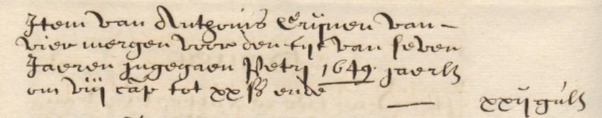 Item van Anthonis Crijnen van
vier mergen voor den tijt van seven
Jaeren jngegaen Petrj 1649 jaerlx
om viij cap tot xx ß ende
xxij gulx